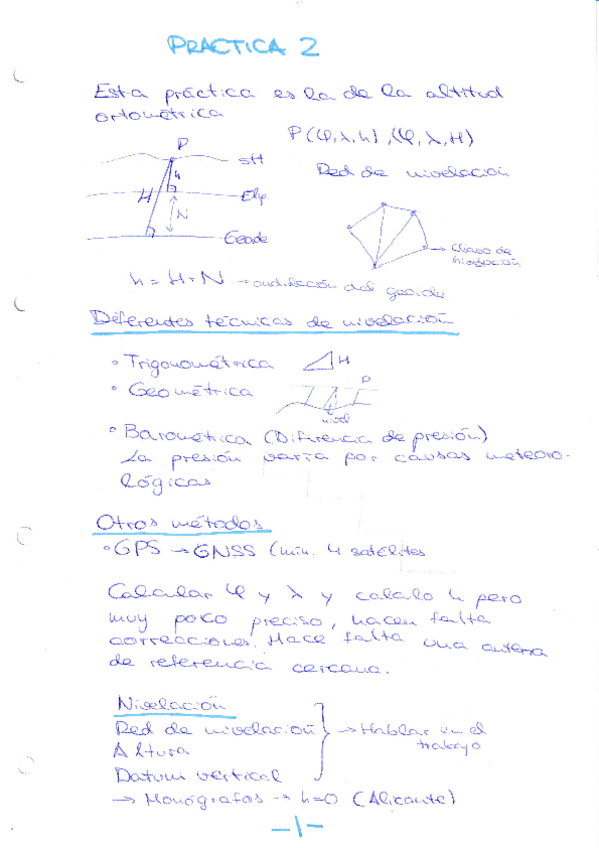 PRACTICA 2
Esta práctica es la de la altitud
ortométrica
P(φ,λ,h), (φ,λ,H)
P
SH
Red de nivelación
h
H
Elip
N
Geoide
Clavo de
nivelación
h = H+N → ondulación del geoide
Diferentes técnicas de nivelación
° Trigonométrica
H
° Geométrica
P
nivel
° Barométrica (Diferencia de presión)
La presión varía por causas meteoro-
lógicas
Otros métodos
° GPS → GNSS (mín. 4 satélites
Calcular φ y λ y calculo h pero
muy poco preciso, hacen falta
correcciones. Hace falta una antena
de referencia cercana.
Nivelación
Red de nivelación
→ Hablar en el
trabajo
Altura
Datum vertical
→ Monógrafos → h=0 (Alicante)
-1-